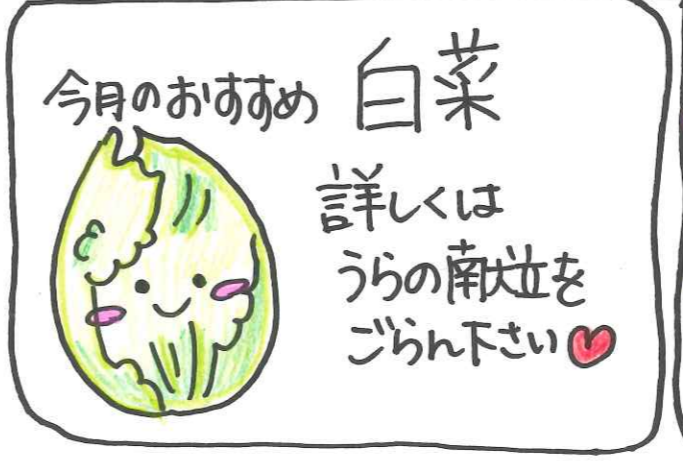 今月のおすすめ 白菜
詳しくは
うらの献立を
ごらん下さい